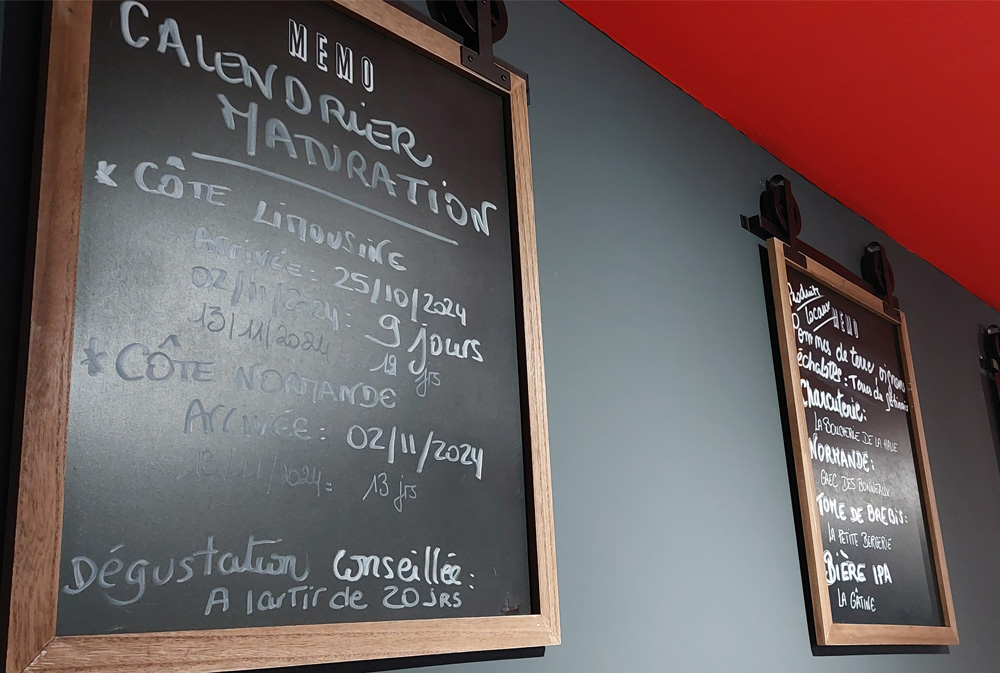 MEMO
CALENDRIER
MATURATION
* CÔTE LIMOUSINE
ARRIVÉE : 25/10/2024
02/11/2024 : 9 jours
13/11/2024 19 jrs
* CÔTE NORMANDE
ARRIVÉE : 02/11/2024
13/11/2024 = 13 jrs
Dégustation conseillée :
A partir de 20 JRS
Produits
locaux MEMO
Pommes de terre oignons
échalotes : Terres du
Charcuterie :
LA BOUCHERIE DE LA HALLE
NORMANDE :
GAEC DES BONNEAUX
TOME DE BREBIS :
LA PETITE BERGERIE
BIÈRE IPA
LA GÂTINE